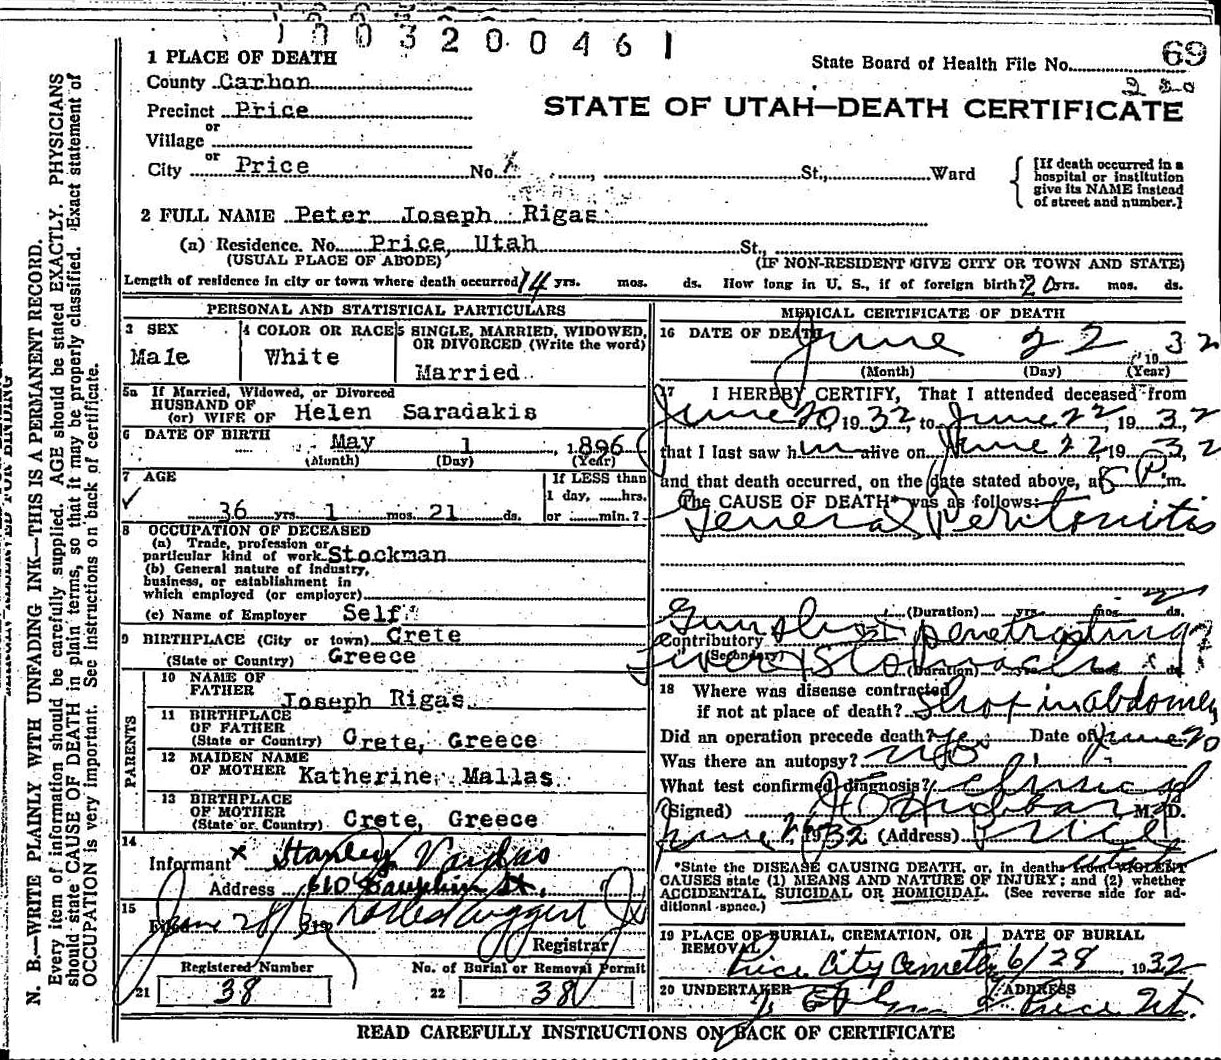 1003200461
69
1 PLACE OF DEATH
State Board of Health File No.
County Carbon
Precinct Price
STATE OF UTAH—DEATH CERTIFICATE
or
Village
or
City Price No. St., Ward
[If death occurred in a
hospital or institution
give its NAME instead
of street and number.]
2 FULL NAME Peter Joseph Rigas
(a) Residence. No. Price, Utah St.,
(USUAL PLACE OF ABODE) (IF NON-RESIDENT GIVE CITY OR TOWN AND STATE)
Length of residence in city or town where death occurred 14 yrs. mos. ds. How long in U. S., if of foreign birth? 20 yrs. mos. ds.
PERSONAL AND STATISTICAL PARTICULARS
3 SEX
Male
4 COLOR OR RACE
White
5 SINGLE, MARRIED, WIDOWED,
OR DIVORCED (Write the word)
Married
5a If Married, Widowed, or Divorced
HUSBAND OF
(or) WIFE OF Helen Saradakis
6 DATE OF BIRTH May 1, 1896
(Month) (Day) (Year)
7 AGE
36 yrs. 1 mos. 21 ds.
If LESS than
1 day, hrs.
or min.?
8 OCCUPATION OF DECEASED
(a) Trade, profession or
particular kind of work Stockman
(b) General nature of industry,
business, or establishment in
which employed (or employer)
(c) Name of Employer Self
9 BIRTHPLACE (City or town) Crete
(State or Country) Greece
PARENTS
10 NAME OF
FATHER Joseph Rigas
11 BIRTHPLACE
OF FATHER
(State or Country) Crete, Greece
12 MAIDEN NAME
OF MOTHER Katherine Mallas
13 BIRTHPLACE
OF MOTHER
(State or Country) Crete, Greece
14
Informant x Stanley Vardas
Address 610 St.
15
Filed June 28, 1932
Registrar
Registered Number
No. of Burial or Removal Permit
21 38
22 38
MEDICAL CERTIFICATE OF DEATH
16 DATE OF DEATH June 22 1932
(Month) (Day) (Year)
17 I HEREBY CERTIFY, That I attended deceased from
June 20, 1932, to June 22, 1932,
that I last saw him alive on June 22, 1932,
and that death occurred, on the date stated above, at 8 P. m.
The CAUSE OF DEATH* was as follows:
General Peritonitis
(Duration) yrs. mos. 2 ds.
Gunshot penetrating
Contributory
(Secondary)
liver & Stomach
(Duration) yrs. mos. ds.
18 Where was disease contracted
if not at place of death? Shot in abdomen
Did an operation precede death? Yes Date of June 20
Was there an autopsy? no
What test confirmed diagnosis? clinical
(Signed) M. D.
June 1932 (Address) Price
Utah
*State the DISEASE CAUSING DEATH, or, in deaths from VIOLENT
CAUSES state (1) MEANS AND NATURE OF INJURY; and (2) whether
ACCIDENTAL, SUICIDAL OR HOMICIDAL. (See reverse side for ad-
ditional space.)
19 PLACE OF BURIAL, CREMATION, OR
REMOVAL
Price City Cemetery
DATE OF BURIAL
6/28 1932
20 UNDERTAKER
ADDRESS
Price Ut.
READ CAREFULLY INSTRUCTIONS ON BACK OF CERTIFICATE
N. B.—WRITE PLAINLY WITH UNFADING INK—THIS IS A PERMANENT RECORD.
Every item of information should be carefully supplied. AGE should be stated EXACTLY. PHYSICIANS
should state CAUSE OF DEATH in plain terms, so that it may be properly classified. Exact statement of
OCCUPATION is very important. See instructions on back of certificate.